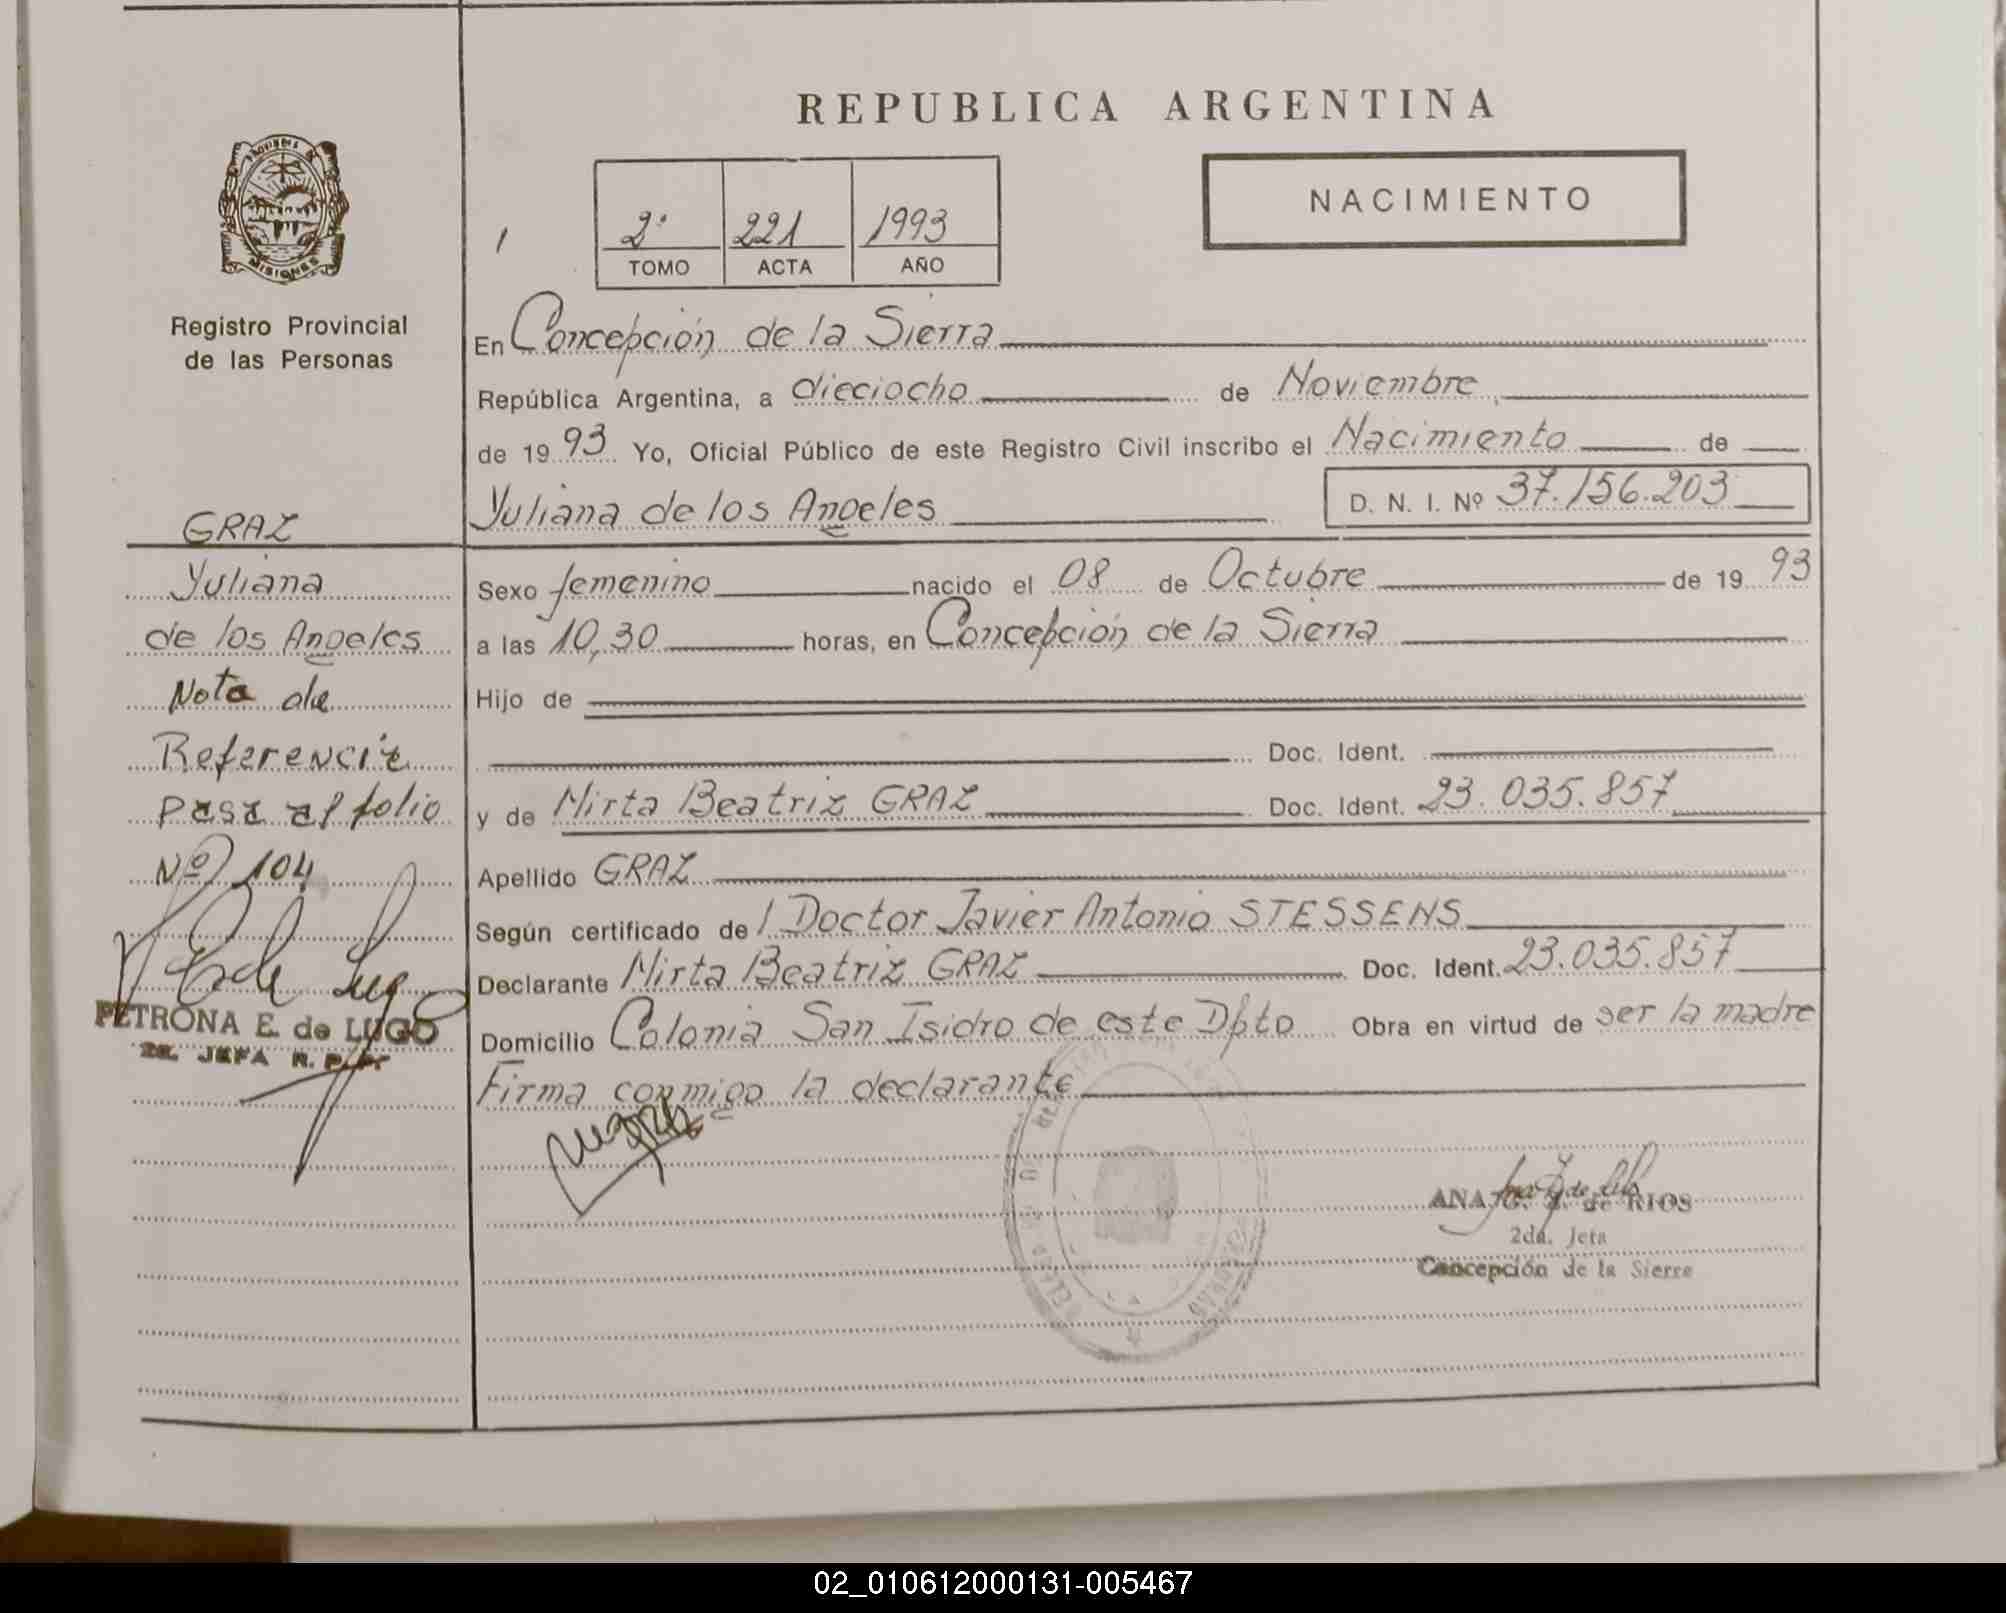 REPUBLICA ARGENTINA
PROVINCIA DE
MISIONES
Registro Provincial
de las Personas
NACIMIENTO
2º 221 1993
TOMO ACTA AÑO
En Concepción de la Sierra
República Argentina, a dieciocho de Noviembre
de 19 93 Yo, Oficial Público de este Registro Civil inscribo el Nacimiento de
Yuliana de los Angeles D. N. I. Nº 37.156.203
Sexo femenino nacido el 08 de Octubre de 19 93
a las 10,30 horas, en Concepción de la Sierra
Hijo de
Doc. Ident.
y de Mirta Beatriz GRAZ Doc. Ident. 23.035.857
Apellido GRAZ
Según certificado de l Doctor Javier Antonio STESSENS
Declarante Mirta Beatriz GRAZ Doc. Ident. 23.035.857
Domicilio Colonia San Isidro de este Dpto Obra en virtud de ser la madre
Firma conmigo la declarante
GRAZ
Yuliana
de los Angeles
Nota de
Referencia
pasa al folio
Nº 104
PETRONA E. de LUGO
2a. JEFA R. P. P.
ANA G. Z. de RIOS
2da. Jefa
Concepción de la Sierra
02_010612000131-005467